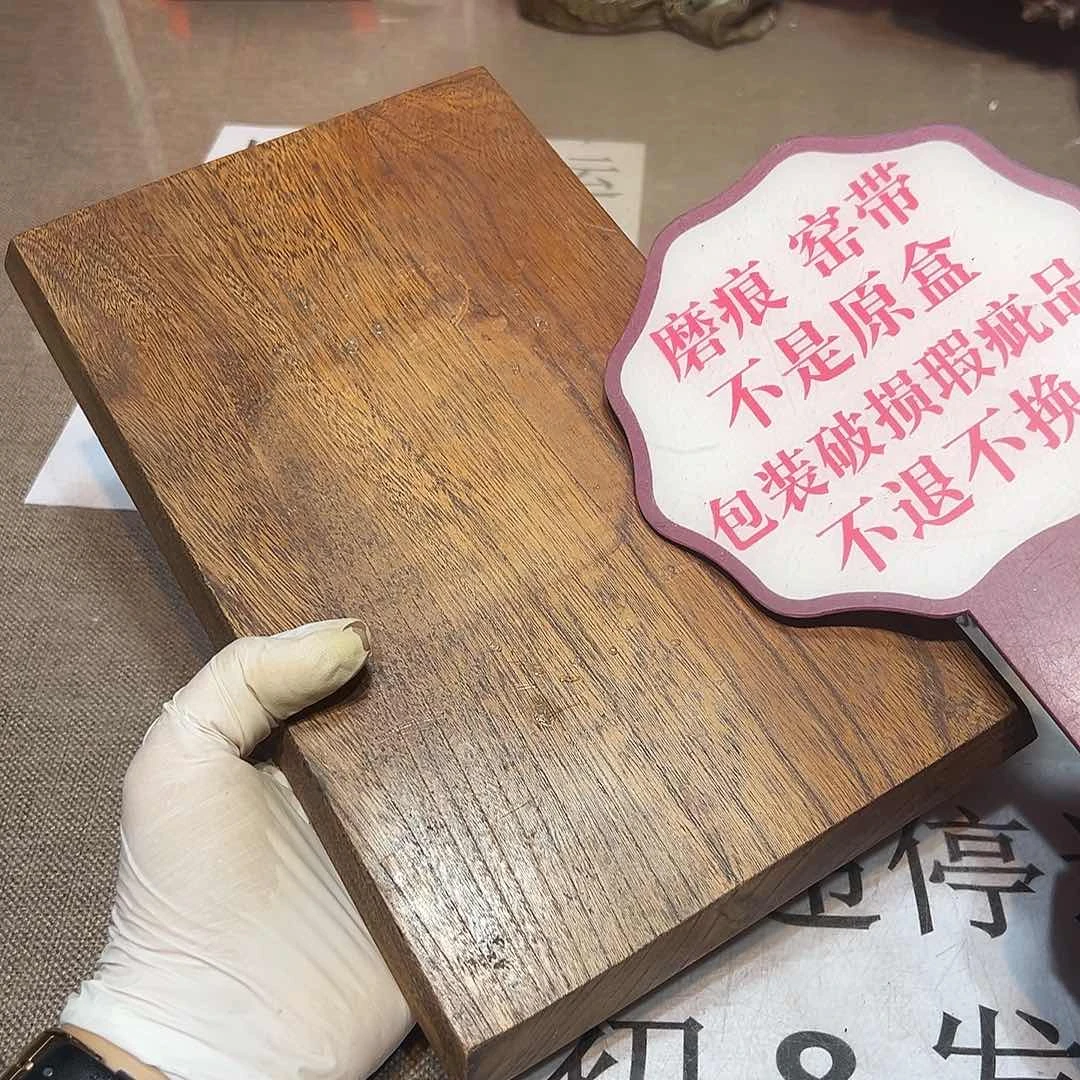 磨痕 窑带
不是原盒
包装破损瑕疵品
不退不换
停
初&发